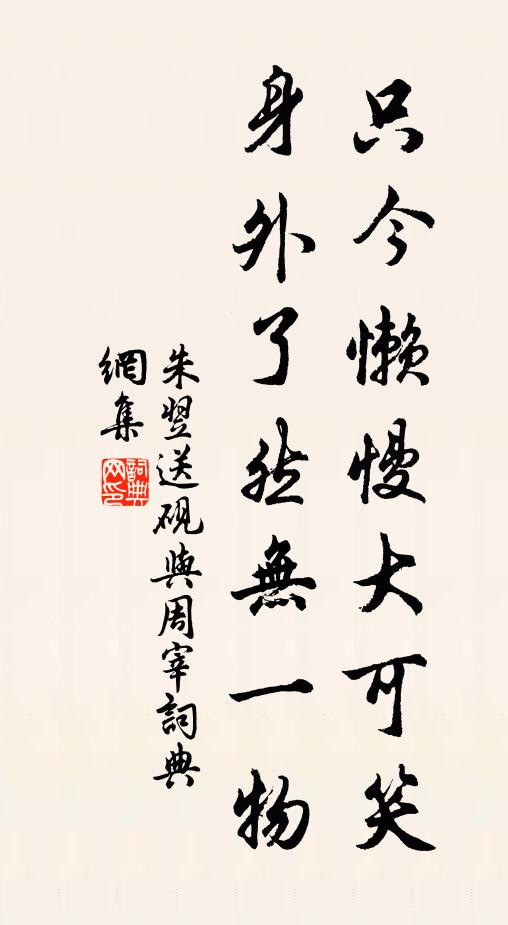 只今懶慢大可笑
身外了然無一物
朱翌送硯與周宰詞典
網集
詞典網印